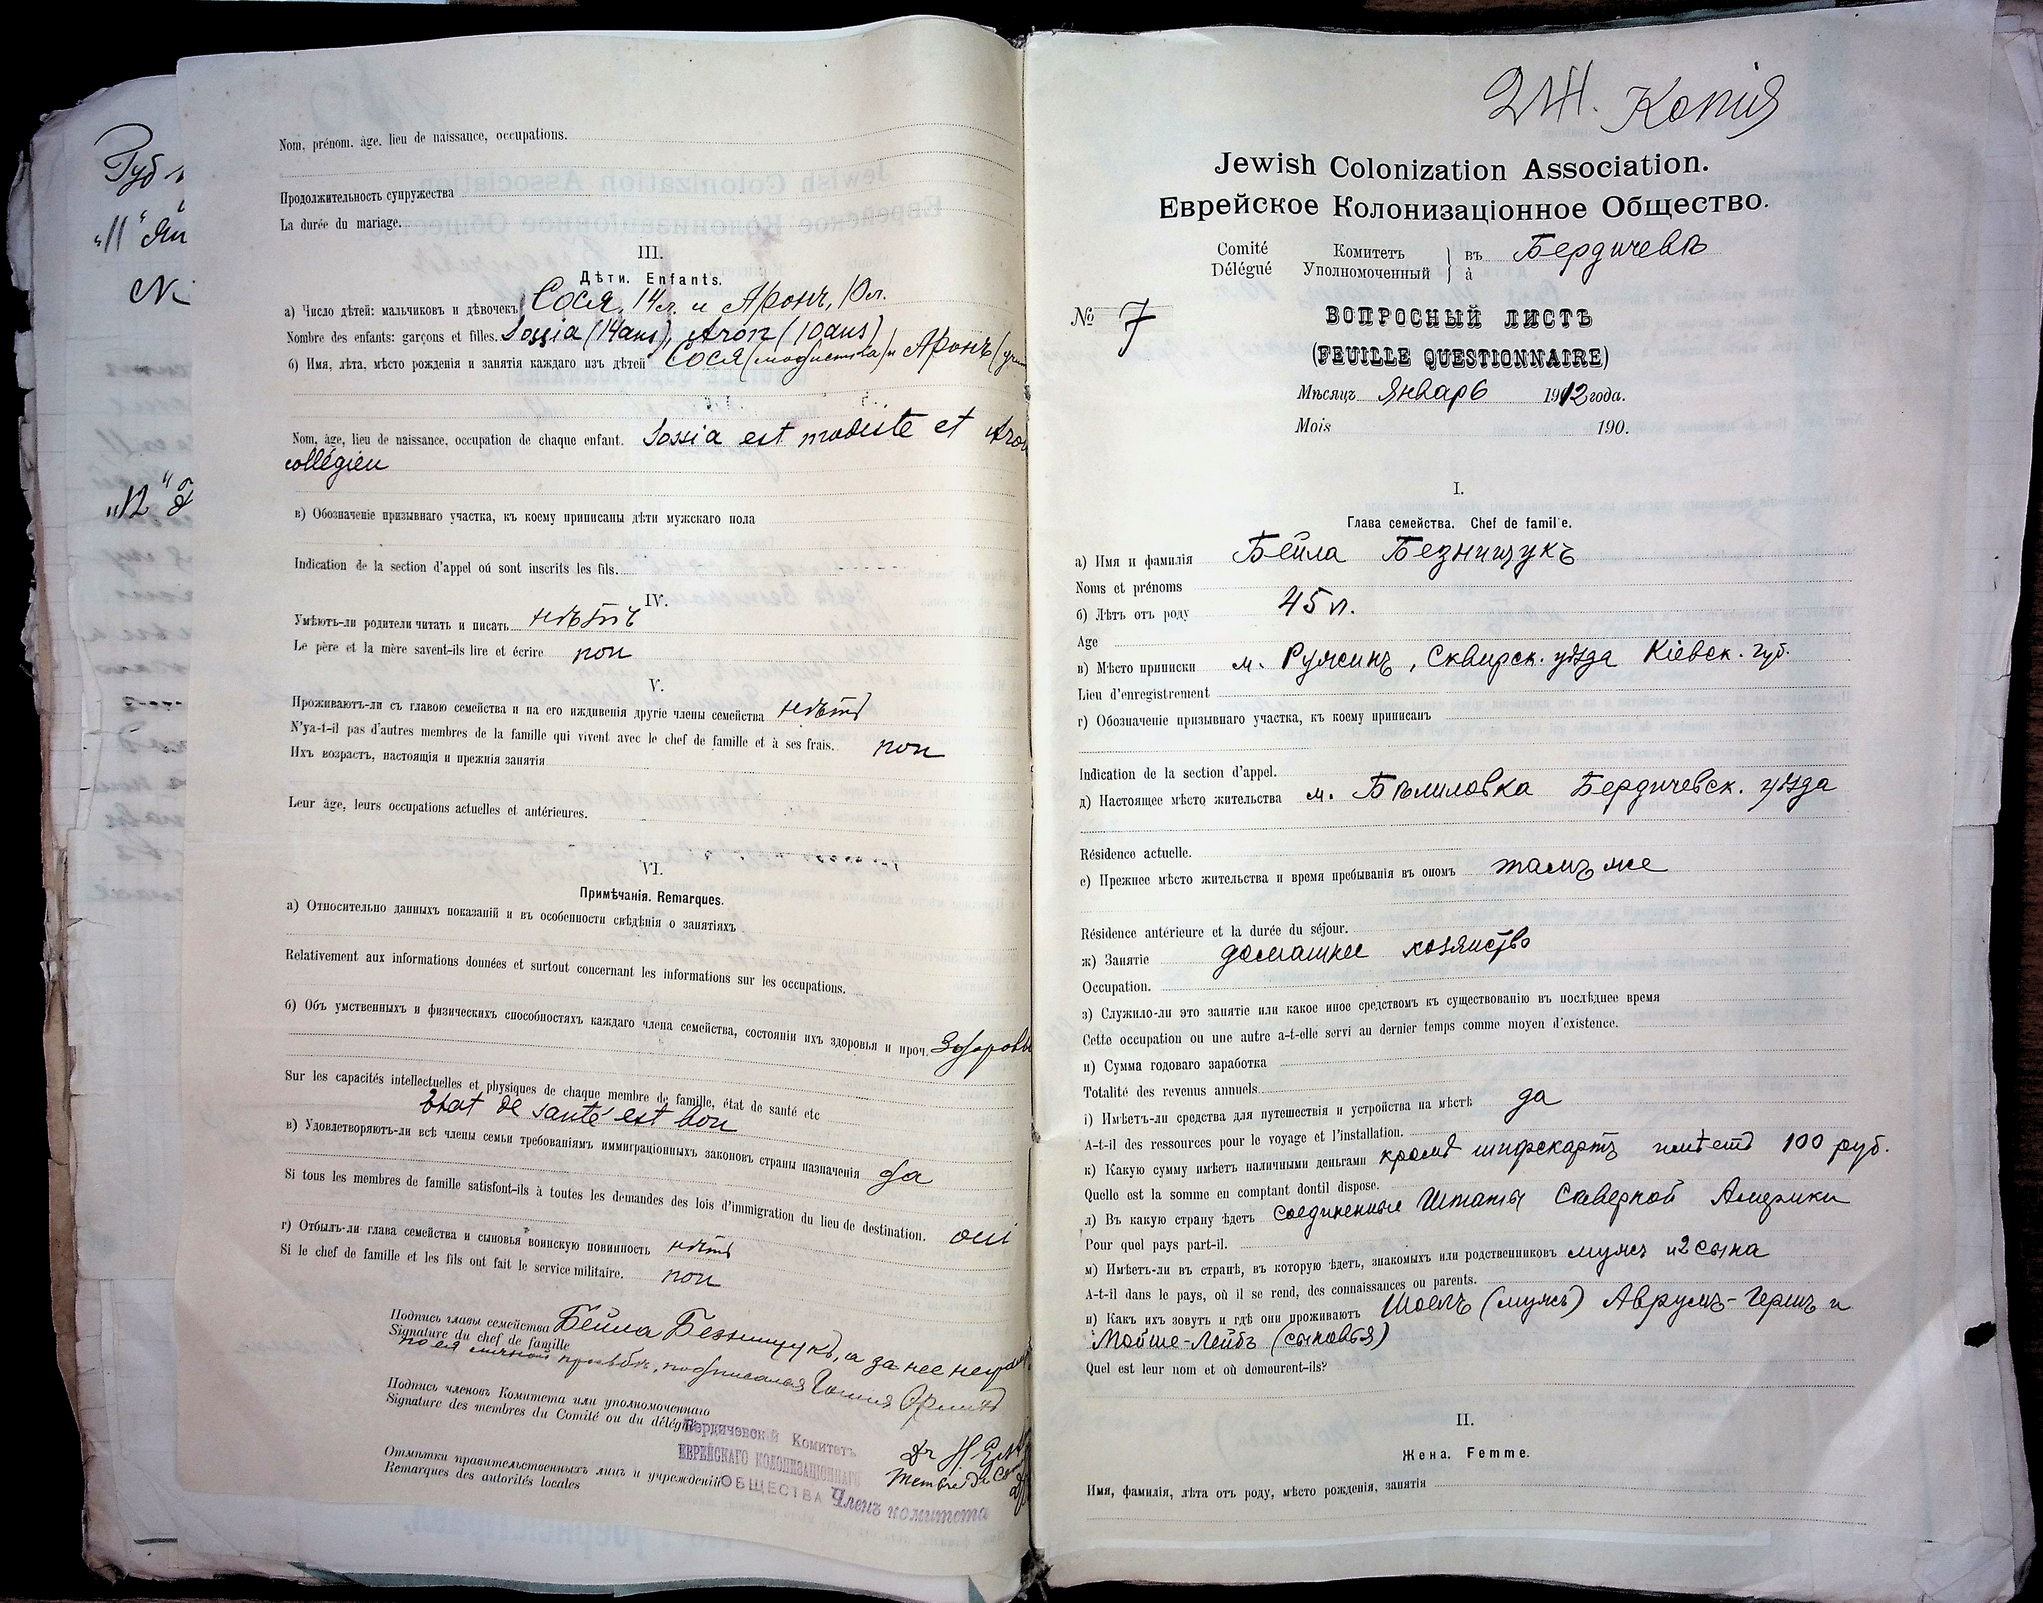 Nom, prénom. âge. lieu de naissance, occupations.
Продолжительность супружества
La durée du mariage.
III.
Дѣти. Enfants.
а) Число дѣтей: мальчиковъ и дѣвочекъ Сося, 14 л. и Аронъ, 10 л.
Nombre des enfants: garçons et filles. Sossia (14 ans), Aron (10 ans)
б) Имя, лѣта, мѣсто рожденія и занятія каждаго изъ дѣтей Сося (модистка) и Аронъ
Nom, âge, lieu de naissance, occupation de chaque enfant. Sossia est modiste et Aron
collégien
в) Обозначеніе призывнаго участка, къ коему приписаны дѣти мужскаго пола
Indication de la section d'appel oú sont inscrits les fils.
IV.
Умѣютъ-ли родители читать и писать нѣтъ
Le père et la mère savent-ils lire et écrire non
V.
Проживаютъ-ли съ главою семейства и на его иждивенія другіе члены семейства нѣтъ
N'ya-t-il pas d'autres membres de la famille qui vivent avec le chef de famille et à ses frais. non
Ихъ возрастъ, настоящія и прежнія занятія
Leur âge, leurs occupations actuelles et antérieures.
VI.
Примѣчанія. Remarques.
а) Относительно данныхъ показаній и въ особенности свѣдѣнія о занятіяхъ
Relativement aux informations données et surtout concernant les informations sur les occupations.
б) Объ умственныхъ и физическихъ способностяхъ каждаго члена семейства, состояніи ихъ здоровья и проч. Здоровы
Sur les capacités intellectuelles et physiques de chaque membre de famille, état de santé etc
Etat de santé est bon
в) Удовлетворяютъ-ли всѣ члены семьи требованіямъ иммиграціонныхъ законовъ страны назначенія да
Si tous les membres de famille satisfont-ils à toutes les demandes des lois d'immigration du lieu de destination. oui
г) Отбылъ-ли глава семейства и сыновья воинскую повинность нѣтъ
Si le chef de famille et les fils ont fait le service militaire. non
Подпись главы семейства Бейла Безнищукъ, а за нее
Signature du chef de famille
по ея личной просьбѣ, подписался
Подпись членовъ Комитета или уполномоченнаго
Signature des membres du Comité ou du délégué
Бердичевскій Комитетъ
ЕВРЕЙСКАГО КОЛОНИЗАЦІОННАГО
ОБЩЕСТВА Членъ комитета
Dr
Membre
Отмѣтки правительственныхъ лицъ и учрежденій
Remarques des autorités locales
Копія
Jewish Colonization Association.
Еврейское Колонизаціонное Общество.
Comité Комитетъ въ Бердичевѣ
Délégué Уполномоченный à
№ 7
ВОПРОСНЫЙ ЛИСТЪ
(FEUILLE QUESTIONNAIRE)
Мѣсяцъ Январь 1912 года.
Mois 190.
I.
Глава семейства. Chef de famille.
а) Имя и фамилія Бейла Безнищукъ
Noms et prénoms
б) Лѣтъ отъ роду 45 л.
Age
в) Мѣсто приписки м. Ружинъ, Сквирск. уѣзда Кіевск. губ.
Lieu d'enregistrement
г) Обозначеніе призывнаго участка, къ коему приписанъ
Indication de la section d'appel.
д) Настоящее мѣсто жительства м. Бѣлиловка Бердичевск. уѣзда
Résidence actuelle.
е) Прежнее мѣсто жительства и время пребыванія въ ономъ тамъ же
Résidence antérieure et la durée du séjour.
ж) Занятіе домашнее хозяйство
Occupation.
з) Служило-ли это занятіе или какое иное средствомъ къ существованію въ послѣднее время
Cette occupation ou une autre a-t-elle servi au dernier temps comme moyen d'existence.
и) Сумма годоваго заработка
Totalité des revenus annuels
і) Имѣетъ-ли средства для путешествія и устройства на мѣстѣ да
A-t-il des ressources pour le voyage et l'installation.
к) Какую сумму имѣетъ наличными деньгами кромѣ шифскартъ имѣетъ 100 руб.
Quelle est la somme en comptant dontil dispose.
л) Въ какую страну ѣдетъ Соединенные Штаты Сѣверной Америки
Pour quel pays part-il.
м) Имѣетъ-ли въ странѣ, въ которую ѣдетъ, знакомыхъ или родственниковъ мужъ и 2 сына
A-t-il dans le pays, où il se rend, des connaissances ou parents.
н) Какъ ихъ зовутъ и гдѣ они проживаютъ Шоелъ (мужъ) Аврумъ-Гершъ и
Мойше-Лейбъ (сыновья)
Quel est leur nom et où demeurent-ils?
II.
Жена. Femme.
Имя, фамилія, лѣта отъ роду, мѣсто рожденія, занятія